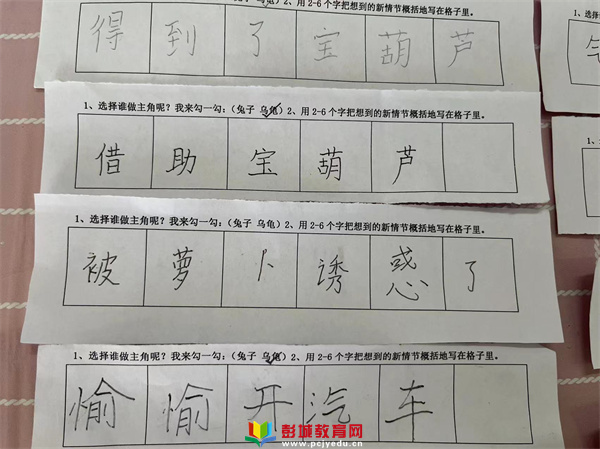 乌龟）2、用 2-6 个字把想到的新情节概括地写在格子里。
得到了宝葫芦
1、选择谁做主角呢？我来勾一勾：（兔子 乌龟）2、用 2-6 个字把想到的新情节概括地写在格子里。
借助宝葫芦
1、选择谁做主角呢？我来勾一勾：（兔子 乌龟）2、用 2-6 个字把想到的新情节概括地写在格子里。
被萝卜诱惑了
1、选择谁做主角呢？我来勾一勾：（兔子 乌龟）2、用 2-6 个字把想到的新情节概括地写在格子里。
愉愉开汽车
彭城教育网
www.pcjyedu.cn